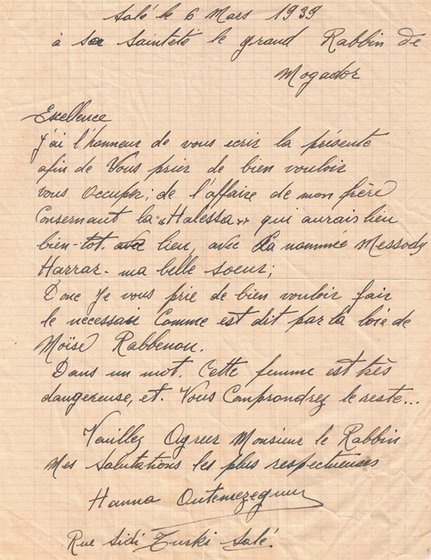 Salé le 6 Mars 1939
à sa Sainteté le grand Rabbin de
Mogador
Exellence
J'ai l'honneur de vous ecrir la présente
afin de Vous prier de bien vouloir
vous occuper; de l'affaire de mon frère
Consernant la "Halessa" qui aurais lieu
bien-tot lieu, avec la nommée Messody
Harrar- ma belle soeur;
Donc Je vous prie de bien vouloir fair
le necessair Comme est dit par la loie de
Moïse Rabbenou.
Dans un mot. Cette femme est très
dangereuse, et. Vous Conprondrez le reste...
Veuillez Agreer Monsieur le Rabbin
Mes Salutations les plus respectueuses
Hanna
Rue Sidi Turki Salé.